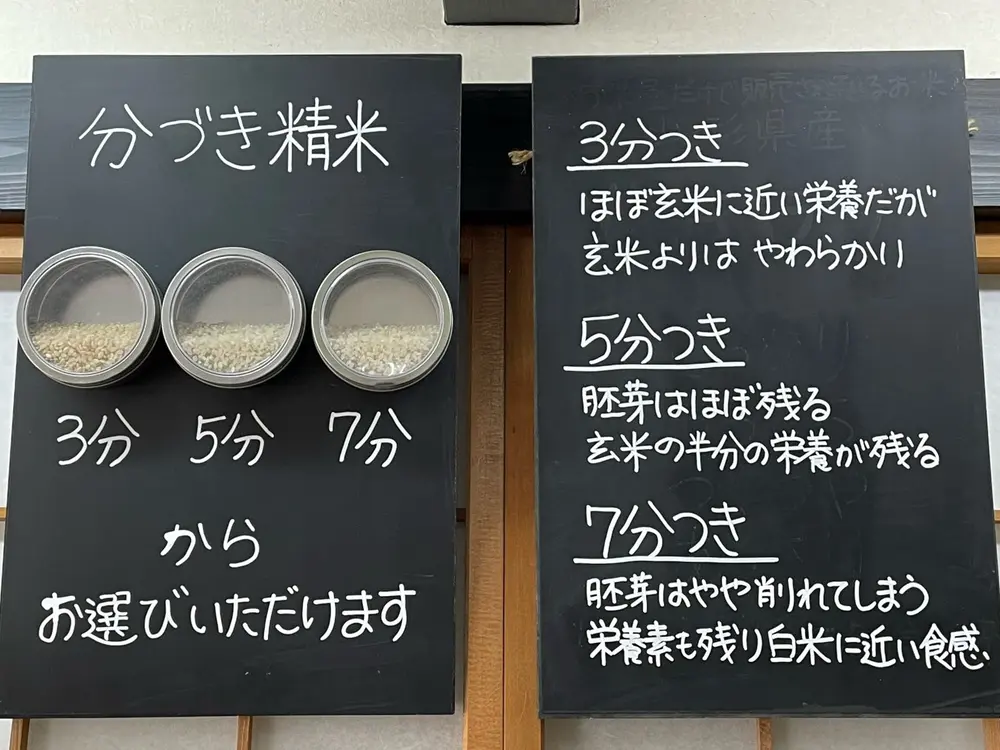 分づき精米
3分 5分 7分
から
お選びいただけます
3分つき
ほぼ玄米に近い栄養だが
玄米よりは やわらかり
5分つき
胚芽はほぼ残る
玄米の半分の栄養が残る
7分つき
胚芽はやや削れてしまう
栄養素も残り白米に近い食感、